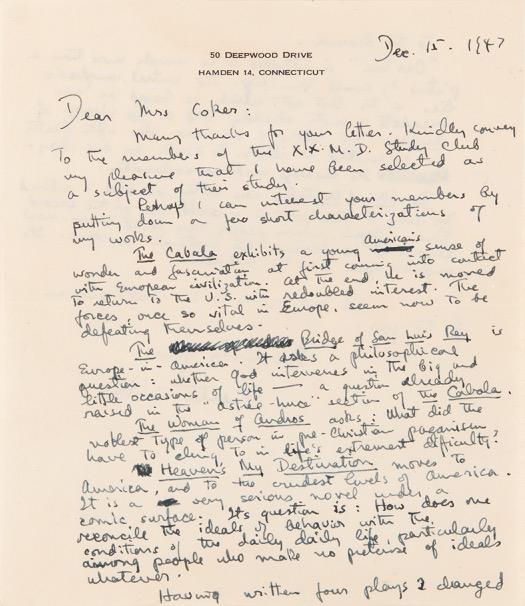 Dec. 15. 1947
50 DEEPWOOD DRIVE
HAMDEN 14, CONNECTICUT
Dear Mrs Coker:
Many thanks for your letter. Kindly convey
to the members of the XX. M. D. Study Club
my pleasure that I have been selected as
a subject of their study.
Perhaps I can interest your members by
putting down a few short characterizations of
my works.
The Cabala exhibits a young American's sense of
wonder and fascination at first coming into contact
with European civilization. At the end he is moved
to return to the U.S. with redoubled interest. The
forces, once so vital in Europe, seem now to be
defeating themselves.
The Bridge of San Luis Rey is
Europe-in-America. It asks a philosophical
question: whether God intervenes in the big and
little occasions of life — a question already
raised in the "Astrée-Luce" section of the Cabala.
The Woman of Andros asks: What did the
noblest type of person in pre-Christian paganism
have to cling to in life's extremest difficulty?
Heaven's My Destination moves to
America, and to the crudest levels of America.
It is a very serious novel under a
comic surface. Its question is: How does one
reconcile the ideals of behavior with the
conditions of the daily daily life, particularly
among people who make no pretense of ideals
whatever.
Having written four plays I changed